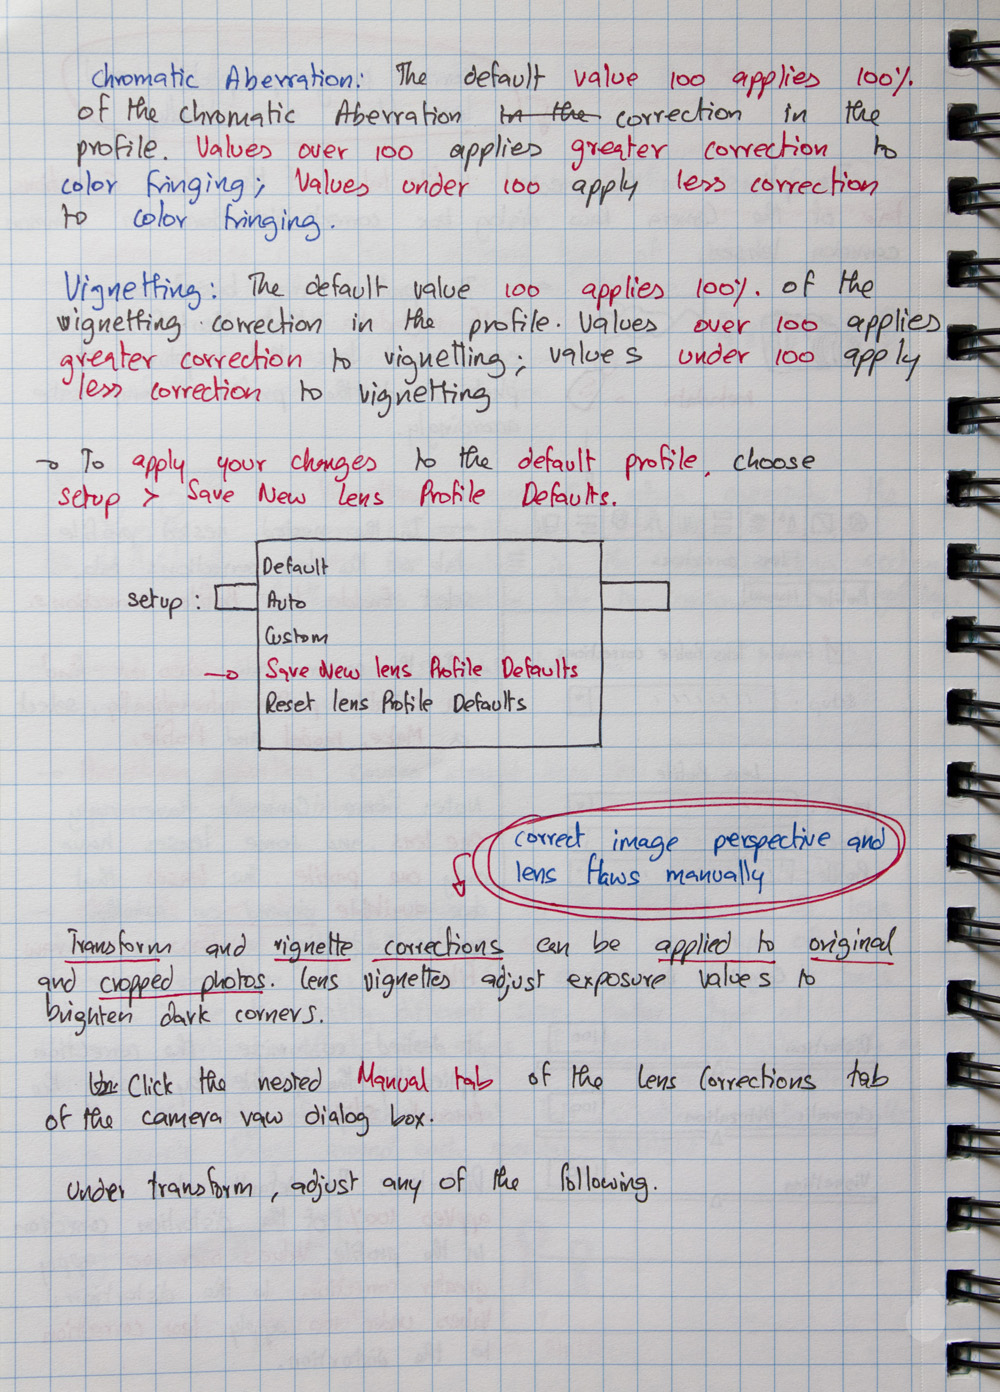 Chromatic Aberration: The default value 100 applies 100%
of the chromatic Aberration in the correction in the
profile. Values over 100 applies greater correction to
color fringing; Values under 100 apply less correction
to color fringing.
Vignetting: The default value 100 applies 100% of the
vignetting correction in the profile. Values over 100 applies
greater correction to vignetting; values under 100 apply
less correction to vignetting
→ To apply your changes to the default profile, choose
setup > Save New lens Profile Defaults.
Default
setup: Auto
Custom
→ Save New lens Profile Defaults
Reset lens Profile Defaults
correct image perspective and
lens flaws manually
Transform and vignette corrections can be applied to original
and cropped photos. lens vignettes adjust exposure values to
brighten dark corners.
Click the nested Manual tab of the lens Corrections tab
of the camera raw dialog box.
Under transform, adjust any of the following.